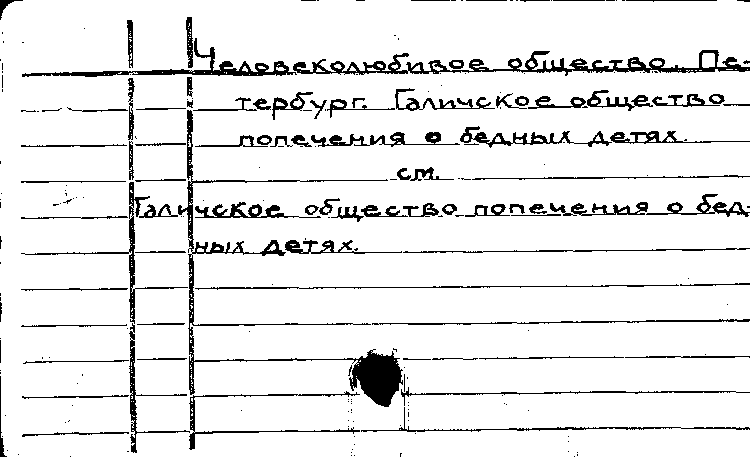 Человеколюбивое общество. Пе-
тербург. Галичское общество
попечения о бедных детях.
см.
Галичское общество попечения о бед-
ных детях.